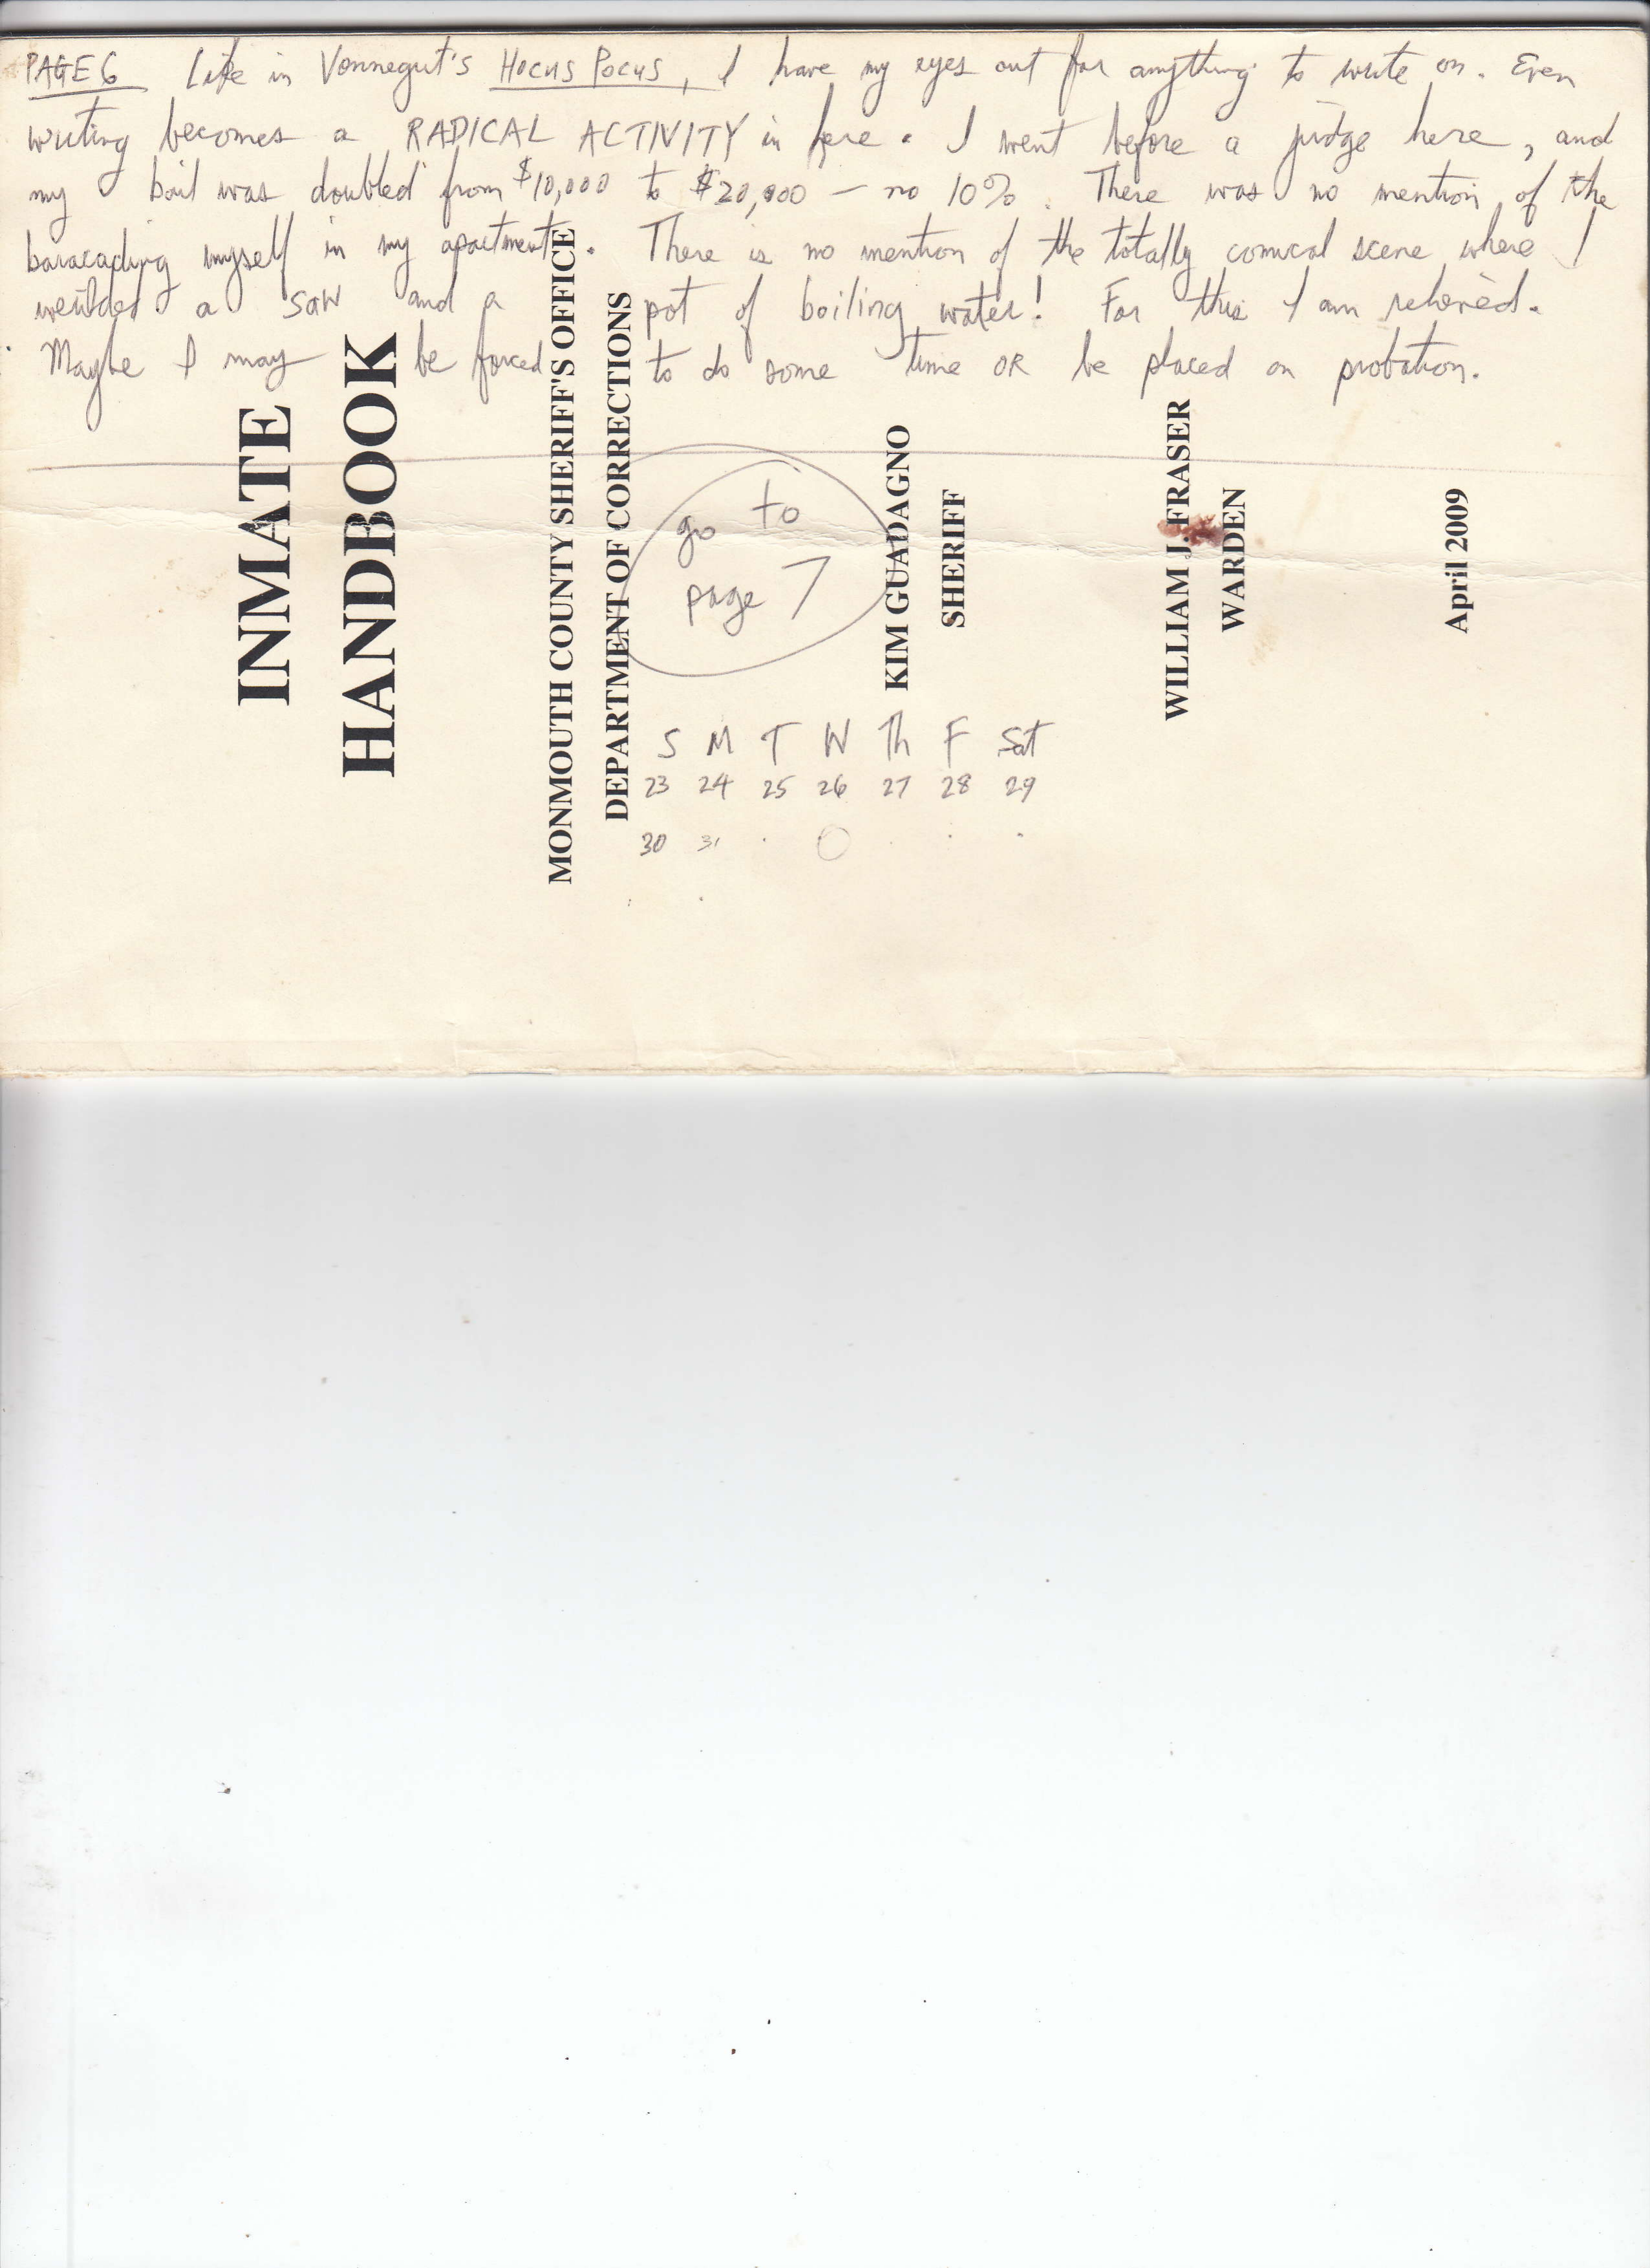 PAGE 6 Like in Vonnegut's HOCUS POCUS, I have my eyes out for anything to write on. Even
writing becomes a RADICAL ACTIVITY in here. I went before a judge here, and
my bail was doubled from $10,000 to $20,000 – no 10%. There was no mention of the
baracading myself in my apartment. There is no mention of the totally comical scene where I
weilded a saw and a pot of boiling water! For this I am relieved.
Maybe I may be forced to do some time OR be placed on probation.
INMATE
HANDBOOK
MONMOUTH COUNTY SHERIFF'S OFFICE
DEPARTMENT OF CORRECTIONS
go to
page 7
KIM GUADAGNO
SHERIFF
WILLIAM J. FRASER
WARDEN
April 2009
S M T W Th F Sat
23 24 25 26 27 28 29
30 31